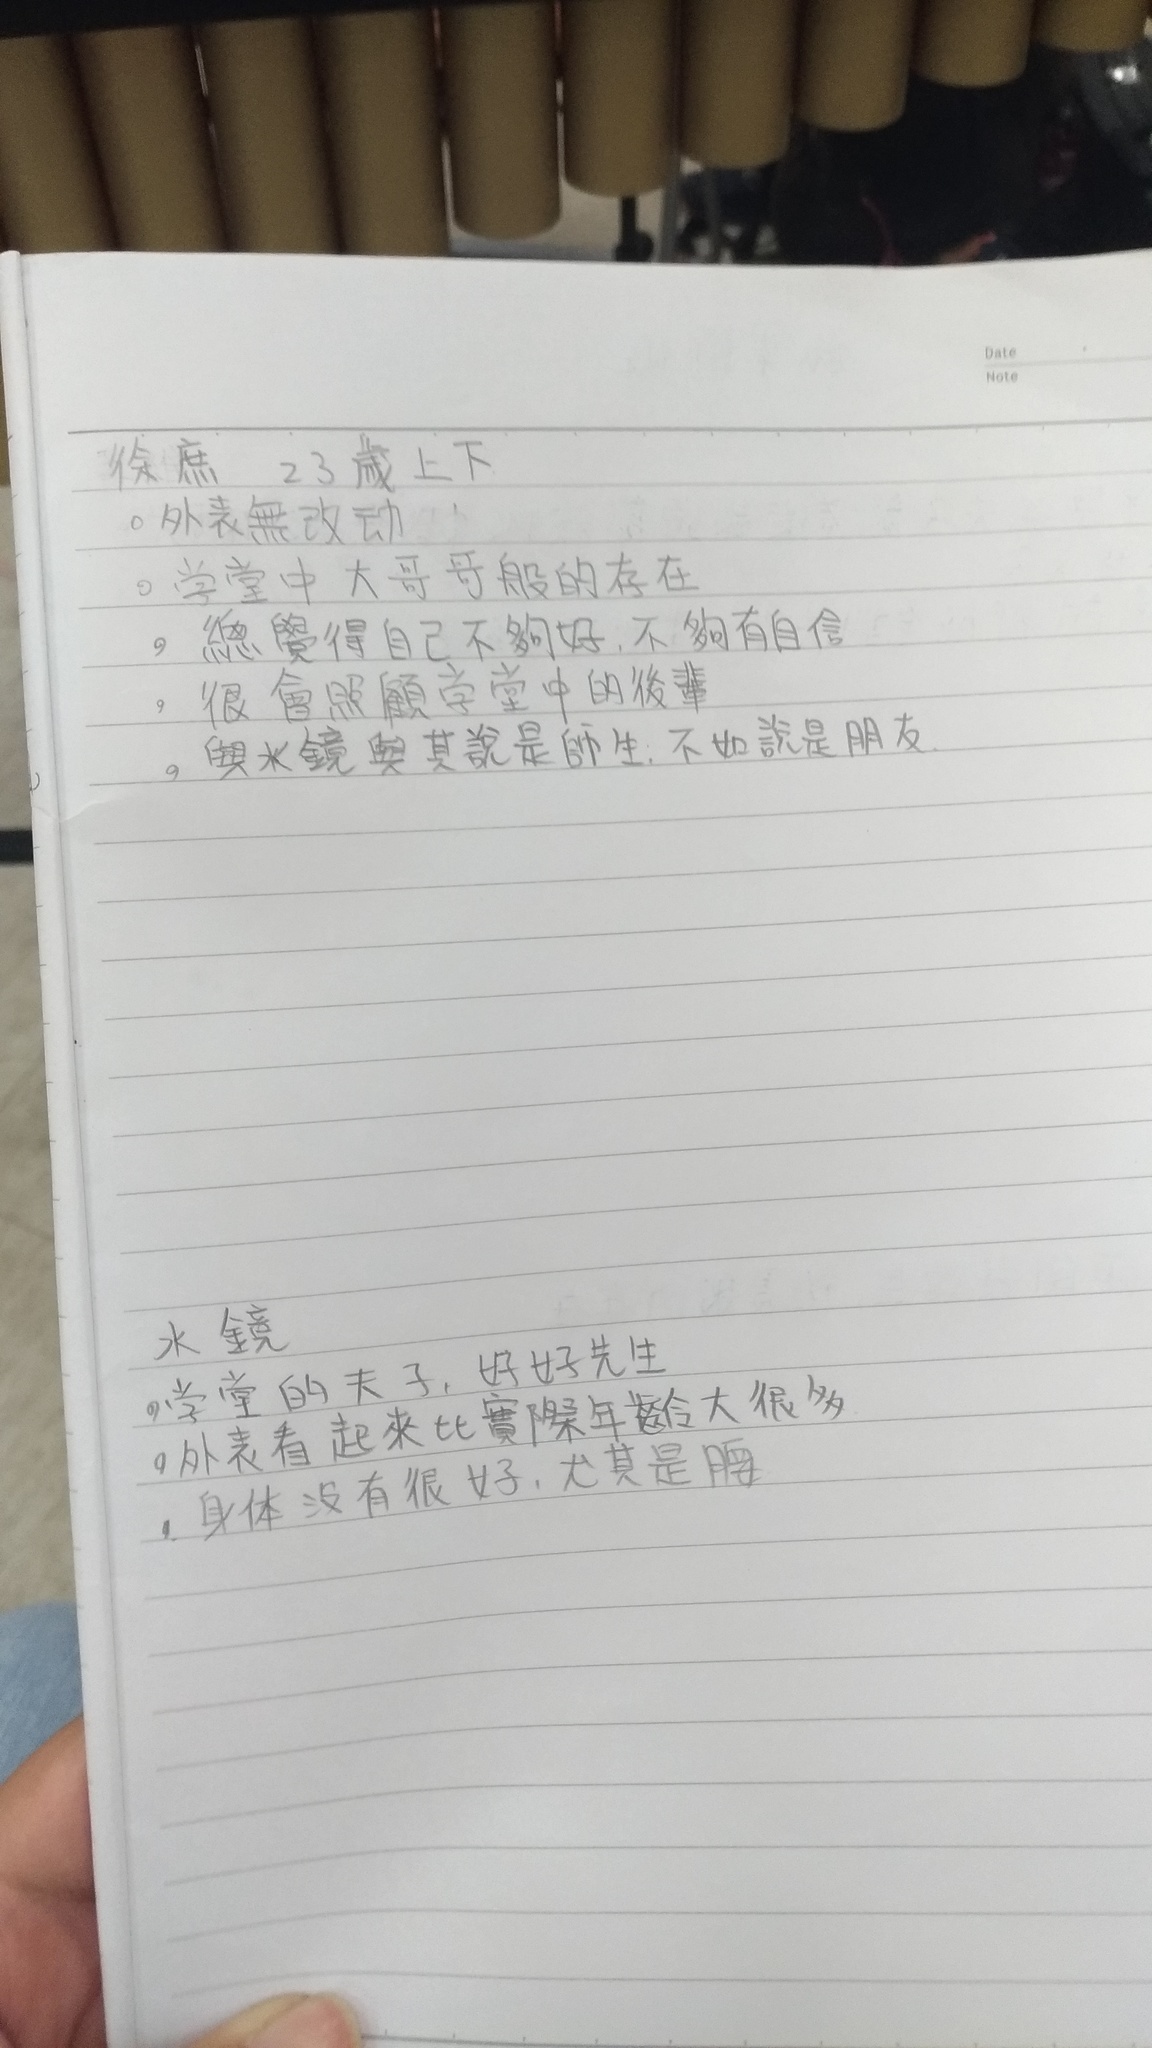 Date
Note
徐庶 23歲上下
。外表無改动
。学堂中大哥哥般的存在
。總覺得自己不夠好，不夠有自信
。很會照顧学堂中的後輩
。與水鏡與其說是師生，不如說是朋友
水鏡
。学堂的夫子，好好先生
。外表看起來比實際年齡大很多
。身体没有很好，尤其是腰